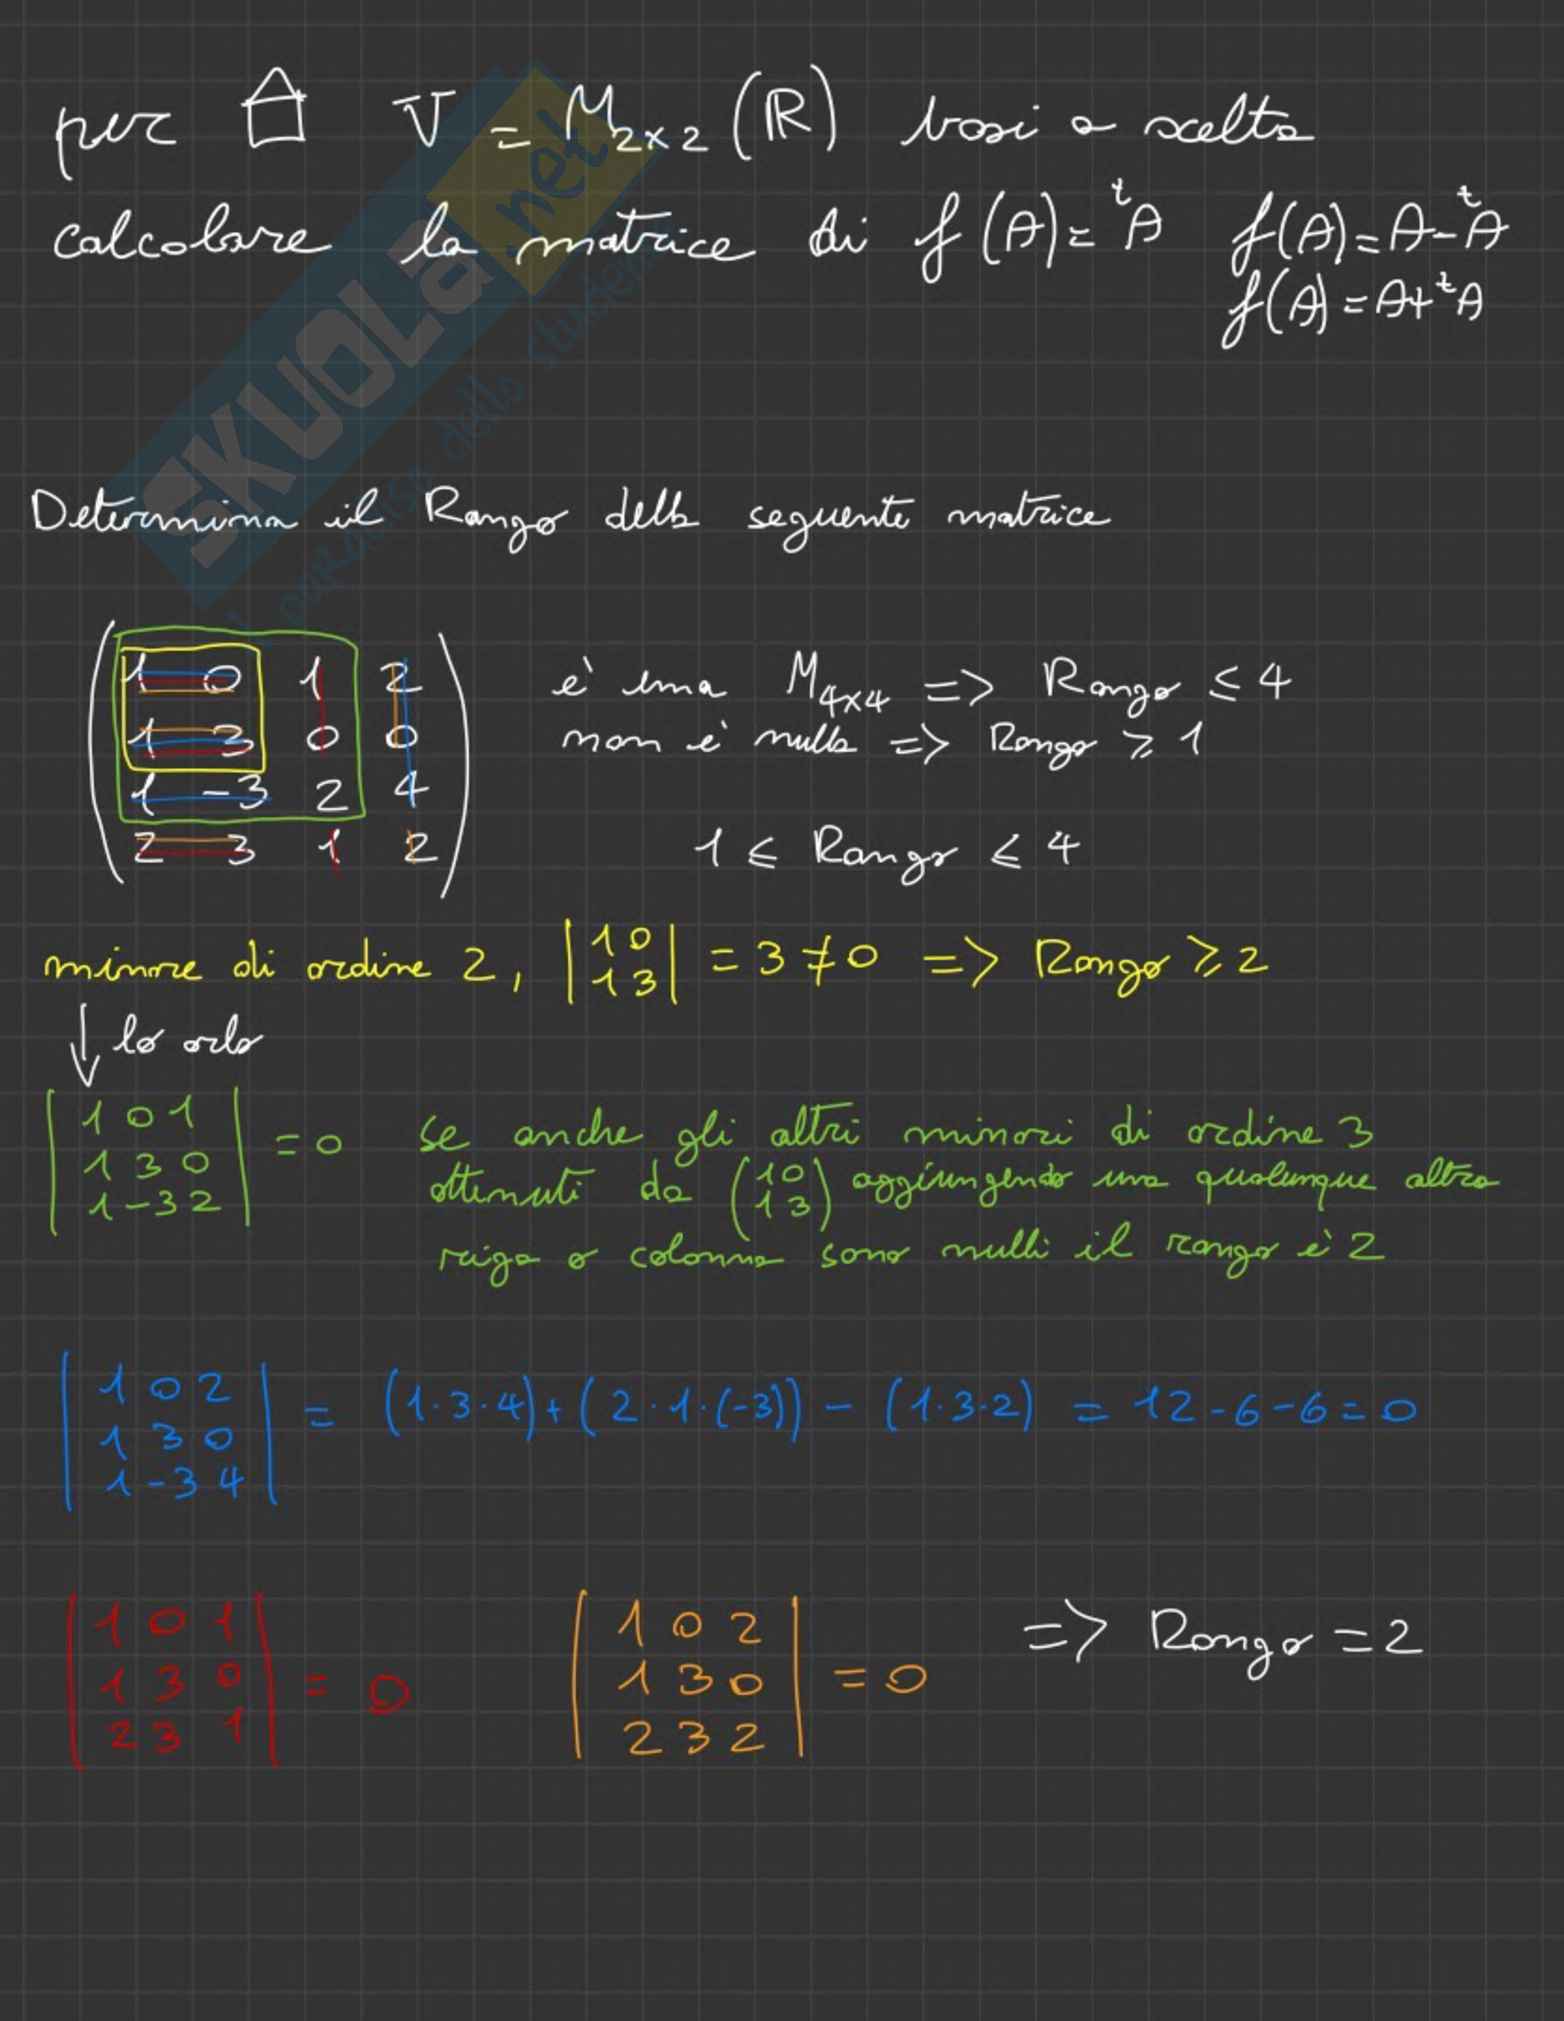 per V = M2x2 (R) basi a scelta
calcolare la matrice di f(A) = ᵗA f(A) = A - ᵗA
f(A) = A + ᵗA
SKUOLA.net
Determina il Rango della seguente matrice
1 0 1 2 è una M4x4 => Rango ≤ 4
1 3 0 0 non è nulla => Rango ≥ 1
1 -3 2 4
2 3 1 2 1 ≤ Rango ≤ 4
minore di ordine 2, |1 0 / 1 3| = 3 ≠ 0 => Rango ≥ 2
↓ lo orlo
|1 0 1 / 1 3 0 / 1 -3 2| = 0 se anche gli altri minori di ordine 3
ottenuti da (1 0 / 1 3) aggiungendo una qualunque altra
riga o colonna sono nulli il rango è 2
|1 0 2 / 1 3 0 / 1 -3 4| = (1·3·4) + (2·1·(-3)) - (1·3·2) = 12 - 6 - 6 = 0
|1 0 1 / 1 3 0 / 2 3 1| = 0 |1 0 2 / 1 3 0 / 2 3 2| = 0 => Rango = 2